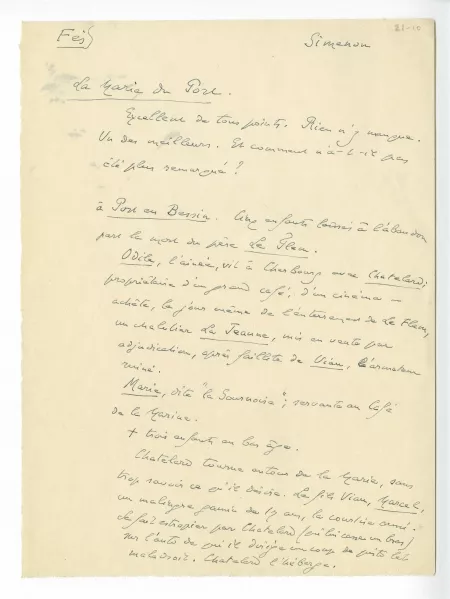 21-10
Fès
Simenon
La Marie du Port.
Excellent de tous points. Rien n'y manque.
Un des meilleurs. Et comment n'a-t-il pas
été plus remarqué ?
à Port en Bessin. Cinq enfants laissés à l'abandon
par la mort du père Le Flem.
Odile, l'ainée, vit à Cherbourg avec Chatelard;
propriétaire d'un grand café, d'un cinéma –
achète, le jour même de l'enterrement de Le Flem,
un chalutier La Jeanne, mis en vente par
adjudication, après faillite de Viau, l'armateur
ruiné.
Marie, dite "la Sournoise"; servante au Café
de la Marine.
+ trois enfants en bas âge.
Chatelard tourne autour de la Marie, sans
trop savoir ce qu'il désire. Le fils Viau, Marcel,
un malingre gamin de 17 ans, la courtise aussi.
Se fait estropier par Chatelard (qui lui casse un bras)
sur l'auto de qui il dirige un coup de
maladroit. Chatelard l'héberge.